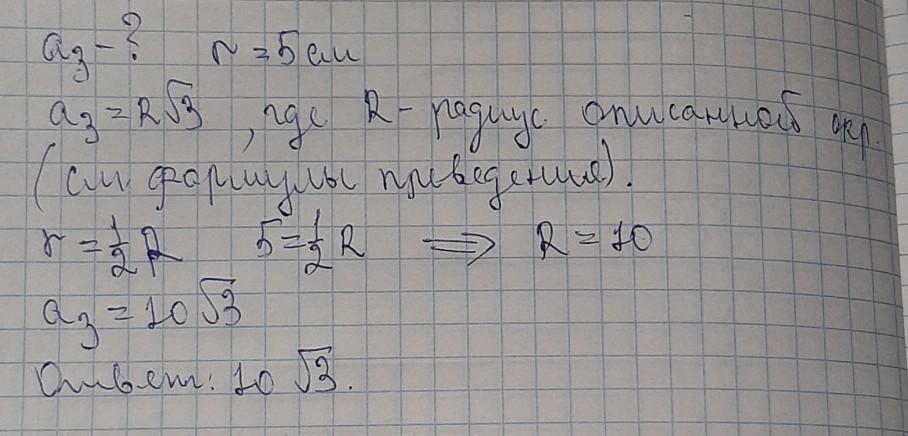 a₃ - ? r = 5 см
a₃ = R√3, где R - радиус описанной окр.
(см. формулы приведения).
r = 1/2 R 5 = 1/2 R ⟹ R = 10
a₃ = 10√3
Ответ: 10√3.